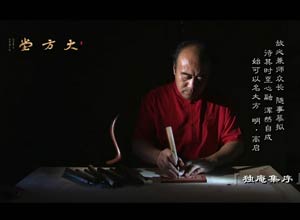 大方堂
故必兼师众长 随事摹拟
待其时至心融 浑然自成
始可以名大方 明·高启
独庵集序